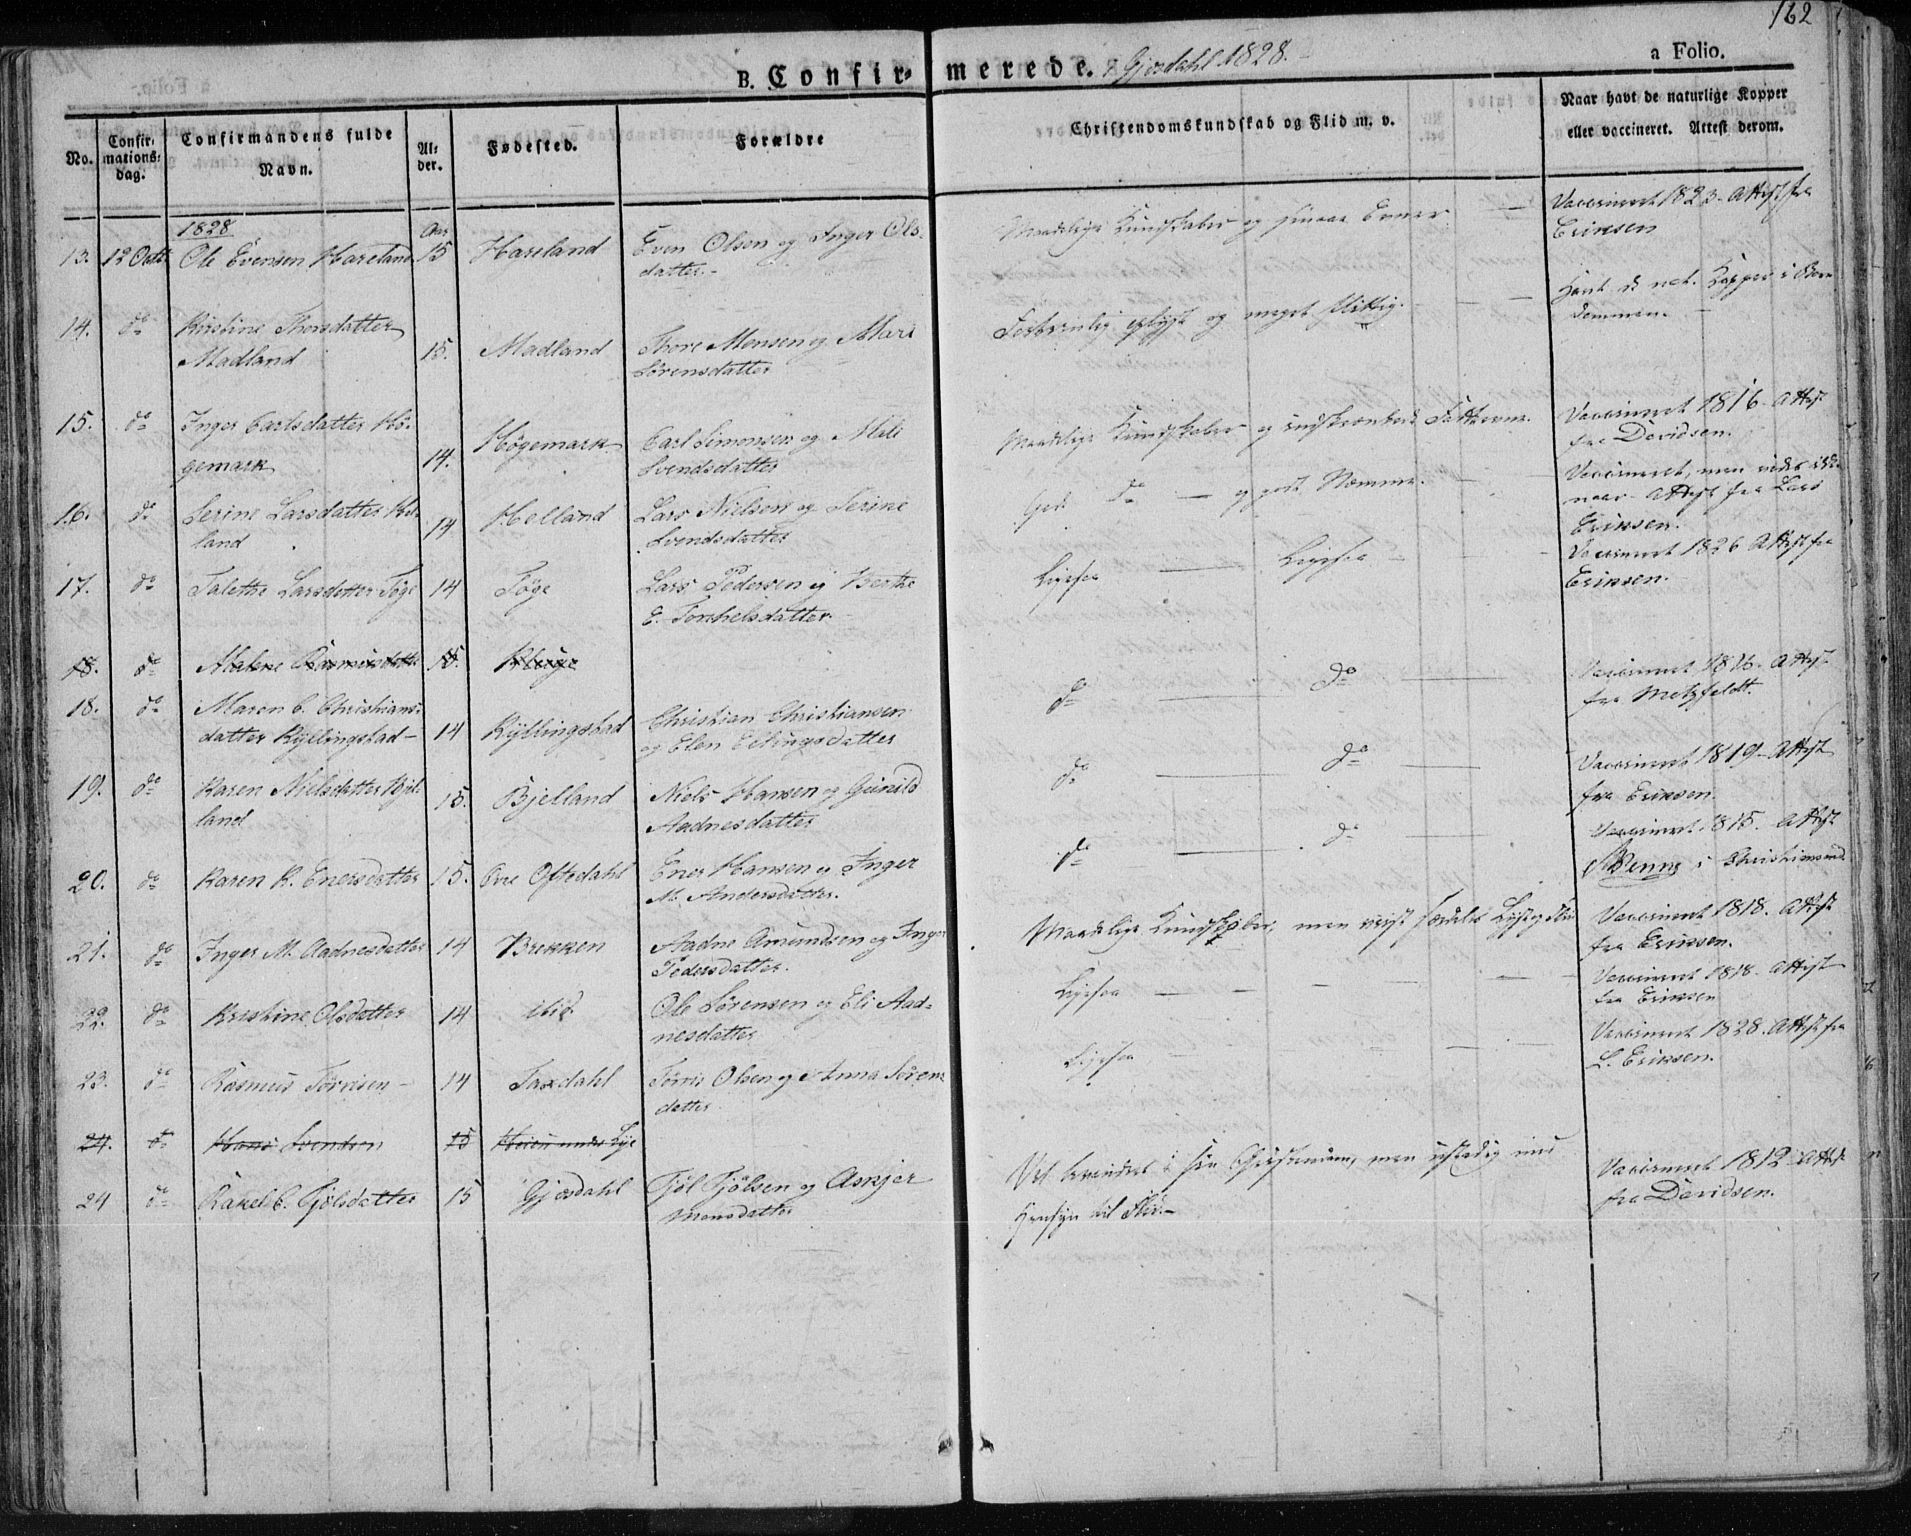 162
B. Confirmerede. i Gjesdahl 1828.
a Folio.
No.
Confirmations-dag.
Confirmandens fulde Navn.
Alder.
Fødested.
Forældre
Christendomskundskab og Flid m. v.
Naar havt de naturlige Kopper eller vaccineret. Attest derom.
1828
Aar
13. 12 Octb. Ole Evensen Hareland 15 Hareland Even Olsen og Inger Ols-
datter.
Maadelige Kundskaber og smaae Evner
Vaccineret 1823. Attest fra
Eriksen
14. do Kirstine Thorsdatter
Madland 15. Madland Thore Monsen og Mari
Sørensdatter
Fortrinlig oplyst og meget flittig.
Havt d. nat. Kopper i Barn-
dommen.
15. do Inger Carlsdatter Hø-
gemark 14. Høgemark Carl Simonsen og Mali
Svendsdatter
Maadelige Kundskaber og indskrænkede Fatteevne.
Vaccineret 1816. Attest
fra Davidsen.
16. do Serine Larsdatter Hel-
land 14 Helland Lars Nielsen og Serine
Svendsdatter
God do og godt Nemme.
Vaccineret, men vides ikke
naar. Attest fra Lars
Eriksen.
17. do Talethe Larsdatter Føge 14 Føge Lars Pedersen og Berthe
E. Torkelsdatter.
Ligesaa Ligesaa
Vaccineret 1826 Attest fra
Eriksen.
18. do Malene Rasmusdatter 15.
18. do Maren C. Christians-
datter Kyllingstad 14 Kyllingstad Christian Christiansen
og Elen Ellingsdatter
do do
Vaccineret 1816. Attest
fra Metzfeldt.
19. do Karen Nielsdatter Bjel-
land 15. Bjelland Niels Hansen og Gunild
Aadnesdatter
do do
Vaccineret 1819. Attest
fra Eriksen.
20. do Karen K. Enersdatter 15. Øvre Oftedahl Ener Hansen og Inger
M. Andersdatter.
do do
Vaccineret 1815. Attest
i Christiansand.
21. do Inger M. Aadnesdatter 14 Brekken Aadne Amundsen og Inger
Pedersdatter.
Maadelige Kundskaber, men viist særdeles Lyst og Flid
Vaccineret 1818. Attest
fra Eriksen.
22. do Kirstine Olsdatter 14 Ole Sørensen og Eli Aad-
nesdatter
Ligesaa
Vaccineret 1818. Attest
fra Eriksen
23. do Rasmus Tørrisen 14 Faxdahl Tørris Olsen og Anna Sørens-
datter
Ligesaa
Vaccineret 1828. Attest fra
L. Eriksen.
24. do Hans Svendsen 15 under Lye
24 do Rakel C. Fjølsdatter 15 Gjesdahl Fjøl Fjølsen og Askjer
Monsdatter
Vel bevandret i sin Christendom, men ustadig med
Hensyn til Flid.
Vaccineret 1812. Attest
fra Davidsen.